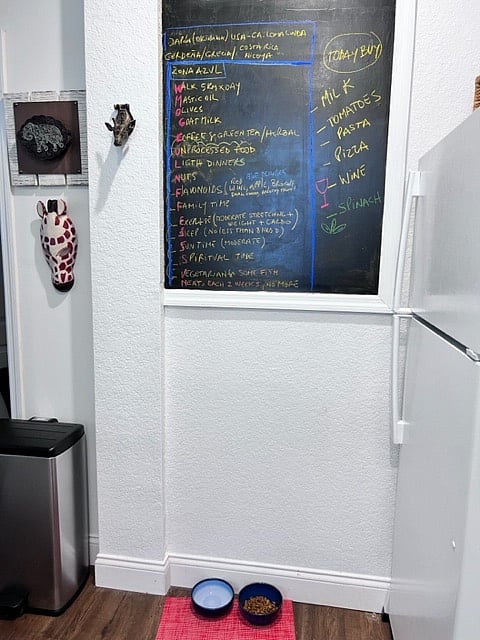 (OKINAWA) USA-CA: LOMA LINDA
CERDEÑA/GRECIA/ COSTA RICA
NICOYA
ZONA AZUL
WALK 5K x DAY
MASTIC OIL
OLIVES
GOAT MILK
COFFEE & GREEN TEA / HERBAL
UNPROCESSED FOOD
LIGTH DINNERS
NUTS
FLAVONOIDS (RED
WINE, APPLE, BROCOLI,
FAMILY TIME
(MODERATE STRETCHING +
WEIGHT + CARDO)
SLEEP (NO LESS THAN 8 H x D)
SUN TIME (MODERATE)
SPIRITUAL TIME
VEGETARIAN & SOME FISH
MEAT: EACH 2 WEEKS / NO MORE
TODAY BUY
- MILK
- TOMATOES
- PASTA
- PIZZA
- WINE
- SPINACH